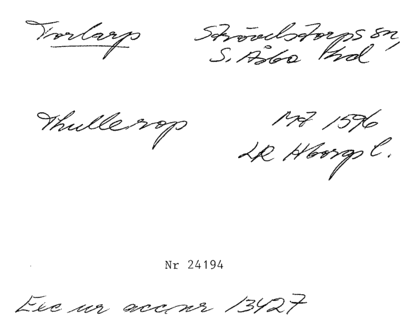 Torlarp Strövelstorps sn,
S. Åsbo hd
Thullerop MJ 1596
LR Hborgs l.
Nr 24194
Exc ur acc.nr 13427